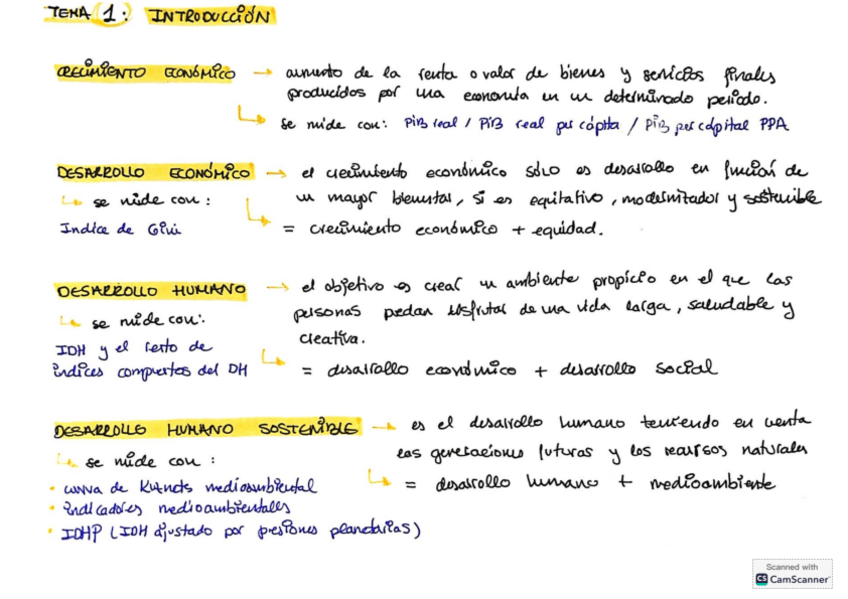 TEMA 1: INTRODUCCIÓN
CRECIMIENTO ECONÓMICO → aumento de la renta o valor de bienes y servicios finales
producidos por una economía en un determinado periodo.
se mide con: PIB real / PIB real per cápita / PIB per cápital PPA
DESARROLLO ECONÓMICO → el crecimiento económico sólo es desarrollo en función de
se mide con: un mayor bienestar, si es equitativo, modernizador y sostenible
Indice de Gini = crecimiento económico + equidad.
DESARROLLO HUMANO → el objetivo es crear un ambiente propicio en el que las
se mide con: personas puedan disfrutar de una vida larga, saludable y
creativa.
IDH y el resto de
índices compuestos del DH = desarrollo económico + desarrollo social
DESARROLLO HUMANO SOSTENIBLE → es el desarrollo humano teniendo en cuenta
las generaciones futuras y los recursos naturales
se mide con:
= desarrollo humano + medioambiente
• curva de Kutnets medioambiental
• indicadores medioambientales
• IDHP (IDH ajustado por presiones planetarias)
Scanned with
CS CamScanner